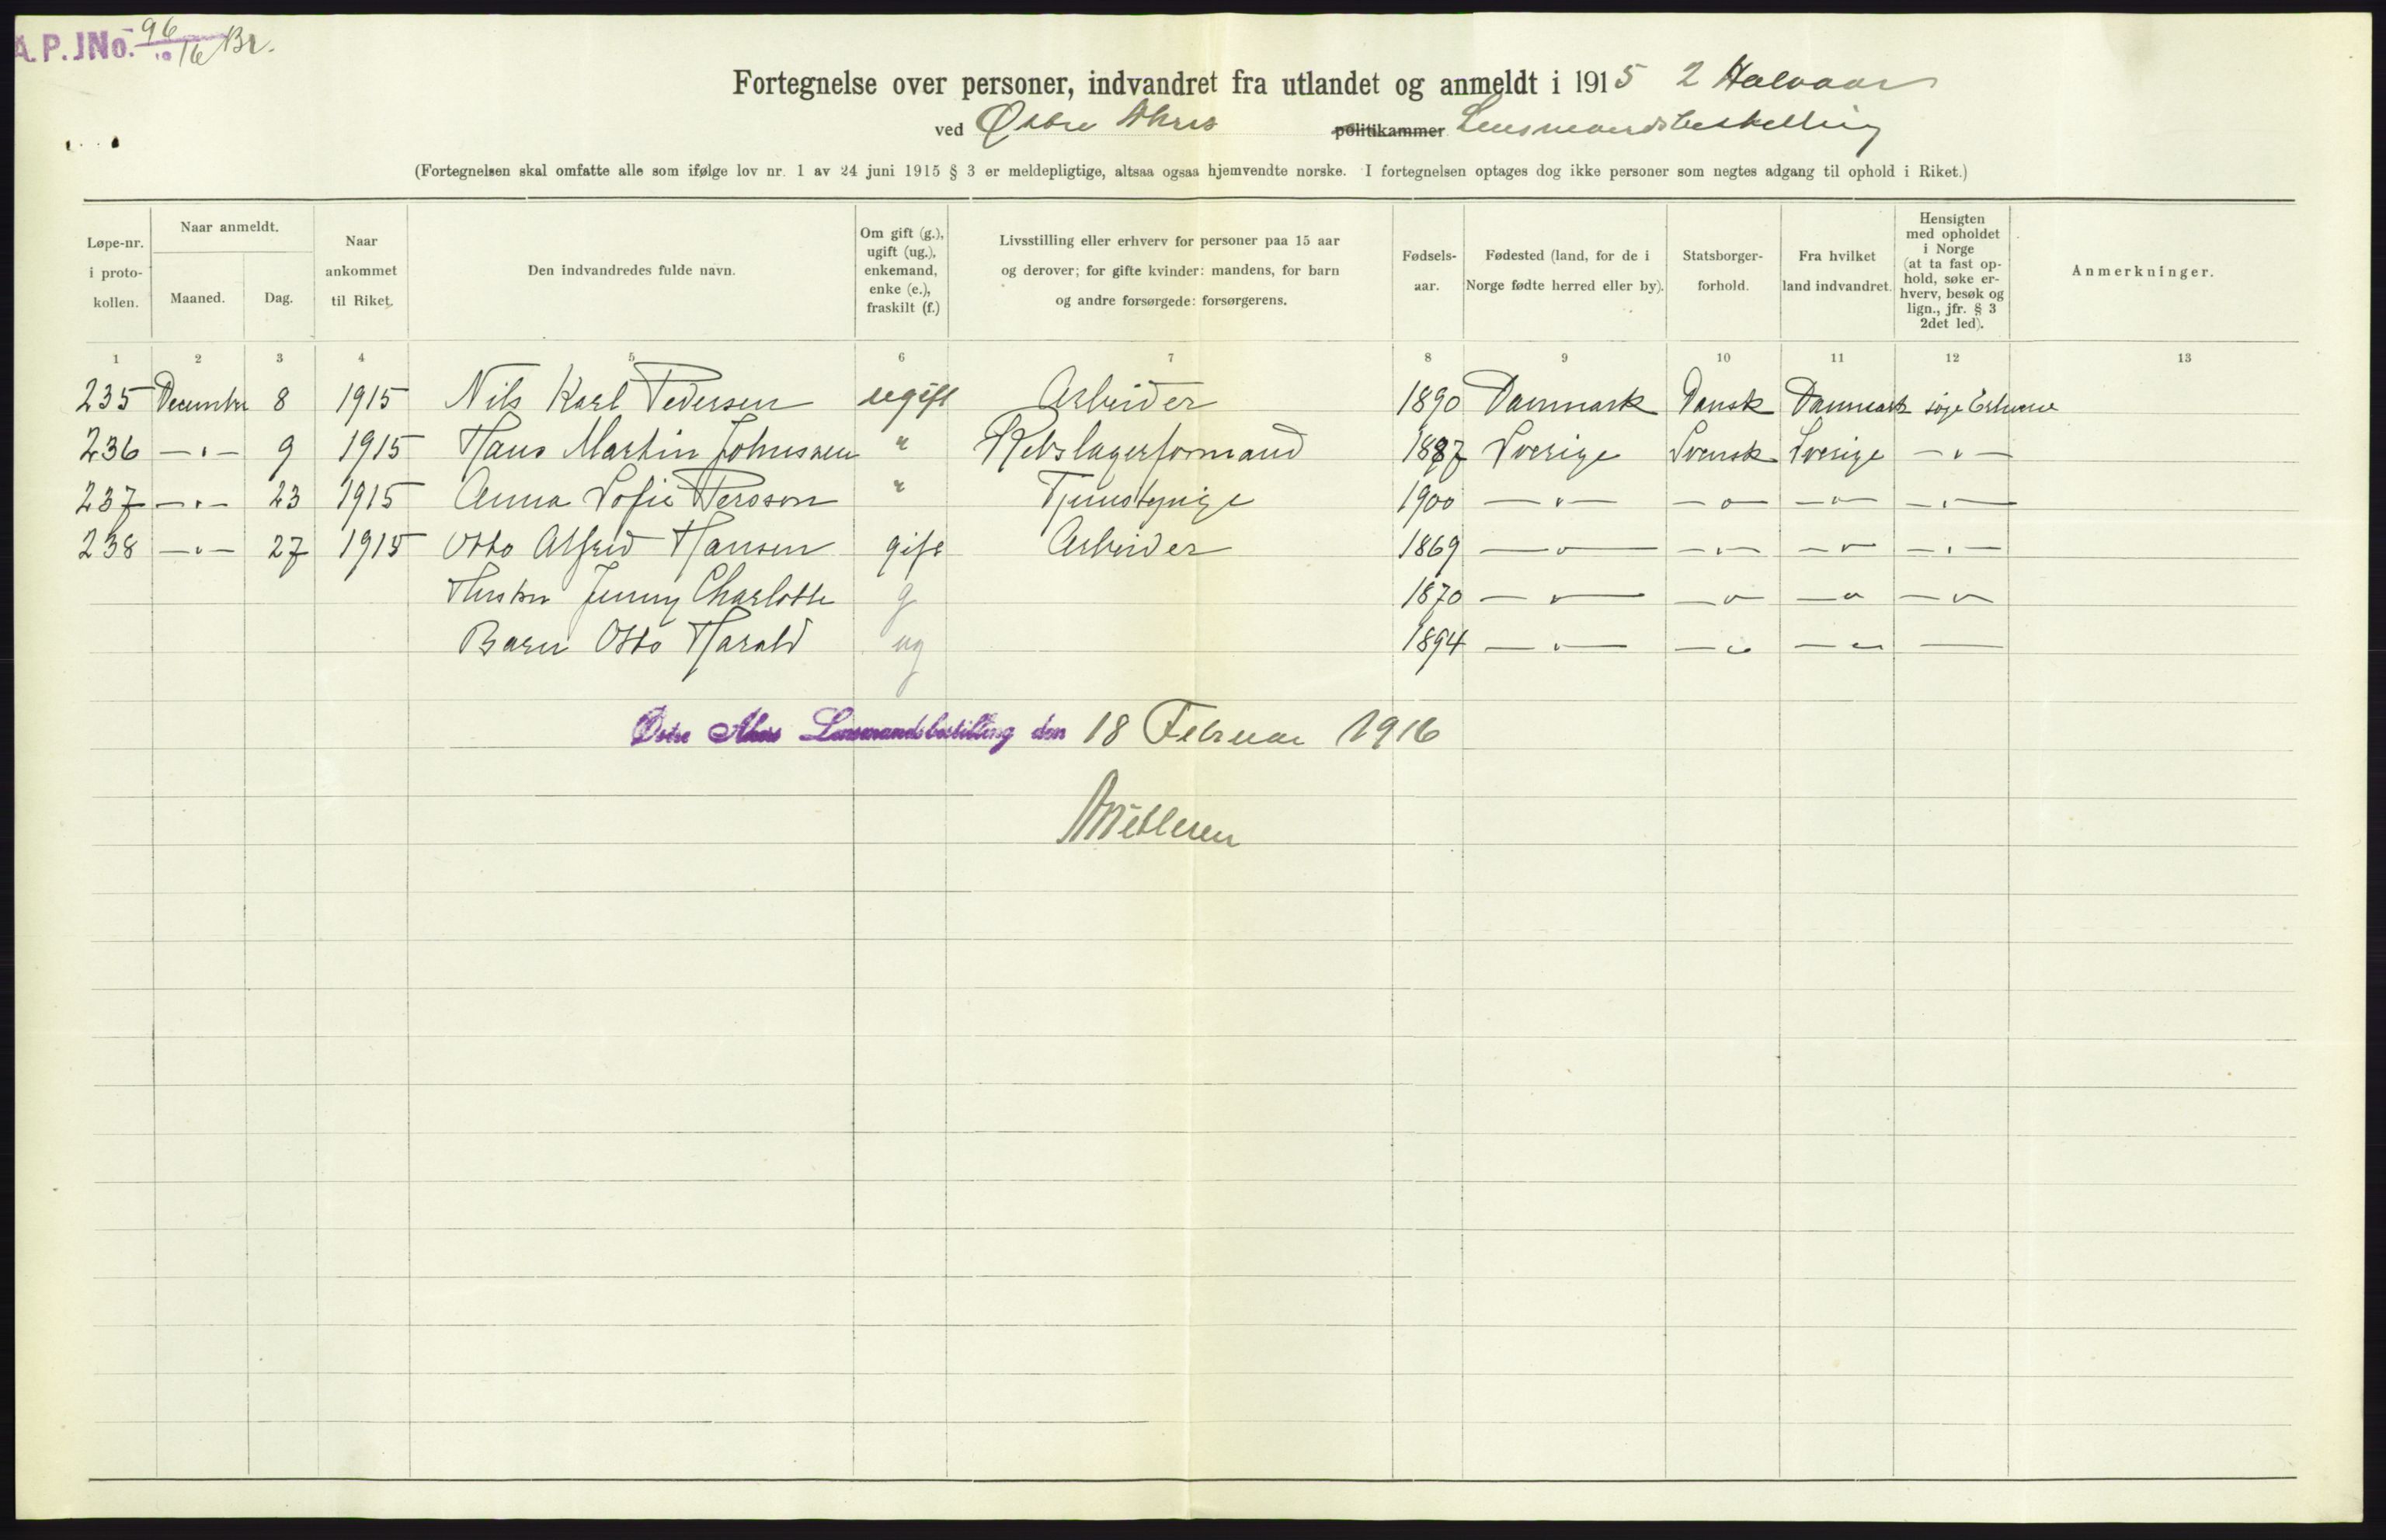 A.P. JNo. 96/1916 Br.
Fortegnelse over personer, indvandret fra utlandet og anmeldt i 1915 2 Halvaar
ved Østre Akers politikammer Lensmandsbestilling
(Fortegnelsen skal omfatte alle som ifølge lov nr. 1 av 24 juni 1915 § 3 er meldepligtige, altsaa ogsaa hjemvendte norske. I fortegnelsen optages dog ikke personer som negtes adgang til ophold i Riket.)
Løpe-nr. i proto-kollen. Naar anmeldt. Maaned. Dag. Naar ankommet til Riket. Den indvandredes fulde navn. Om gift (g.), ugift (ug.), enkemand, enke (e.), fraskilt (f.) Livsstilling eller erhverv for personer paa 15 aar og derover; for gifte kvinder: mandens, for barn og andre forsørgede: forsørgerens. Fødsels-aar. Fødested (land, for de i Norge fødte herred eller by). Statsborger-forhold. Fra hvilket land indvandret. Hensigten med opholdet i Norge (at ta fast op-hold, søke er-hverv, besøk og lign., jfr. § 3 2det led). Anmerkninger.
1 2 3 4 5 6 7 8 9 10 11 12 13
235 December 8 1915 Nils Karl Pedersen ugift Arbeider 1890 Danmark Dansk Danmark søge Erhverv
236 —"— 9 1915 Hans Martin Johnssen " Rebslagerformand 1887 Sverige Svensk Sverige —"—
237 —"— 23 1915 Anna Sofie Persson " Tjenstepige 1900 —"— —"— —"— —"—
238 —"— 27 1915 Otto Alfred Hansen gift Arbeider 1869 —"— —"— —"— —"—
Hustru Jenny Charlotte g 1870 —"— —"— —"— —"—
Barn Otto Harald ug 1894 —"— —"— —"— —
Østre Akers Lensmandsbestilling den 18 Februar 1916